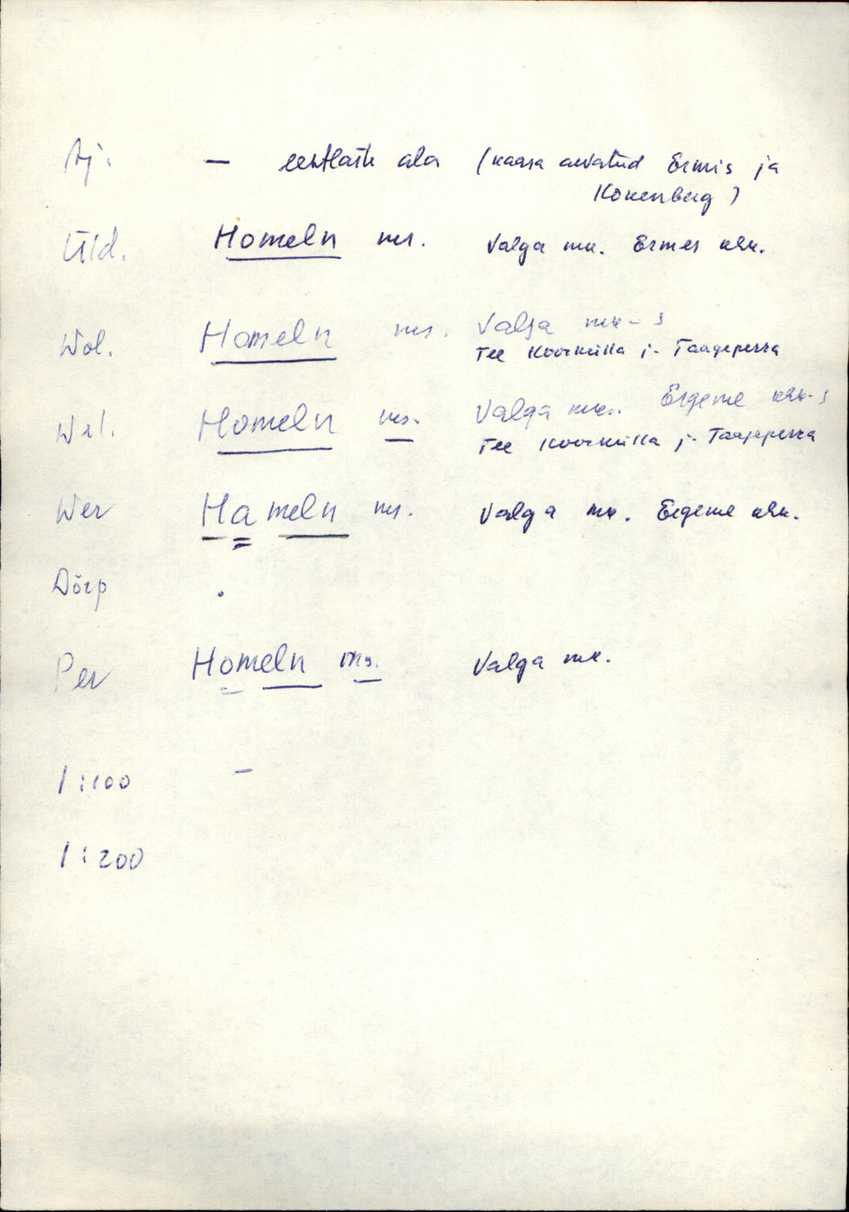 Aj. — eestlaste ala (kaasa arvatud Ermis ja
Konenberg)
Üld. Homeln ms. Valga mk. Ermes khk.
Wol. Homeln ms. Valga mk-s
Tee Koorküla j- Taagepera
Wrl. Homeln ms. Valga mk. Ergeme khk-s
Tee Koorküla j- Taagepera
Wer Hameln ms. Valga mk. Ergeme khk.
Dörp .
Per Homeln ms. Valga mk.
1:100 —
1:200